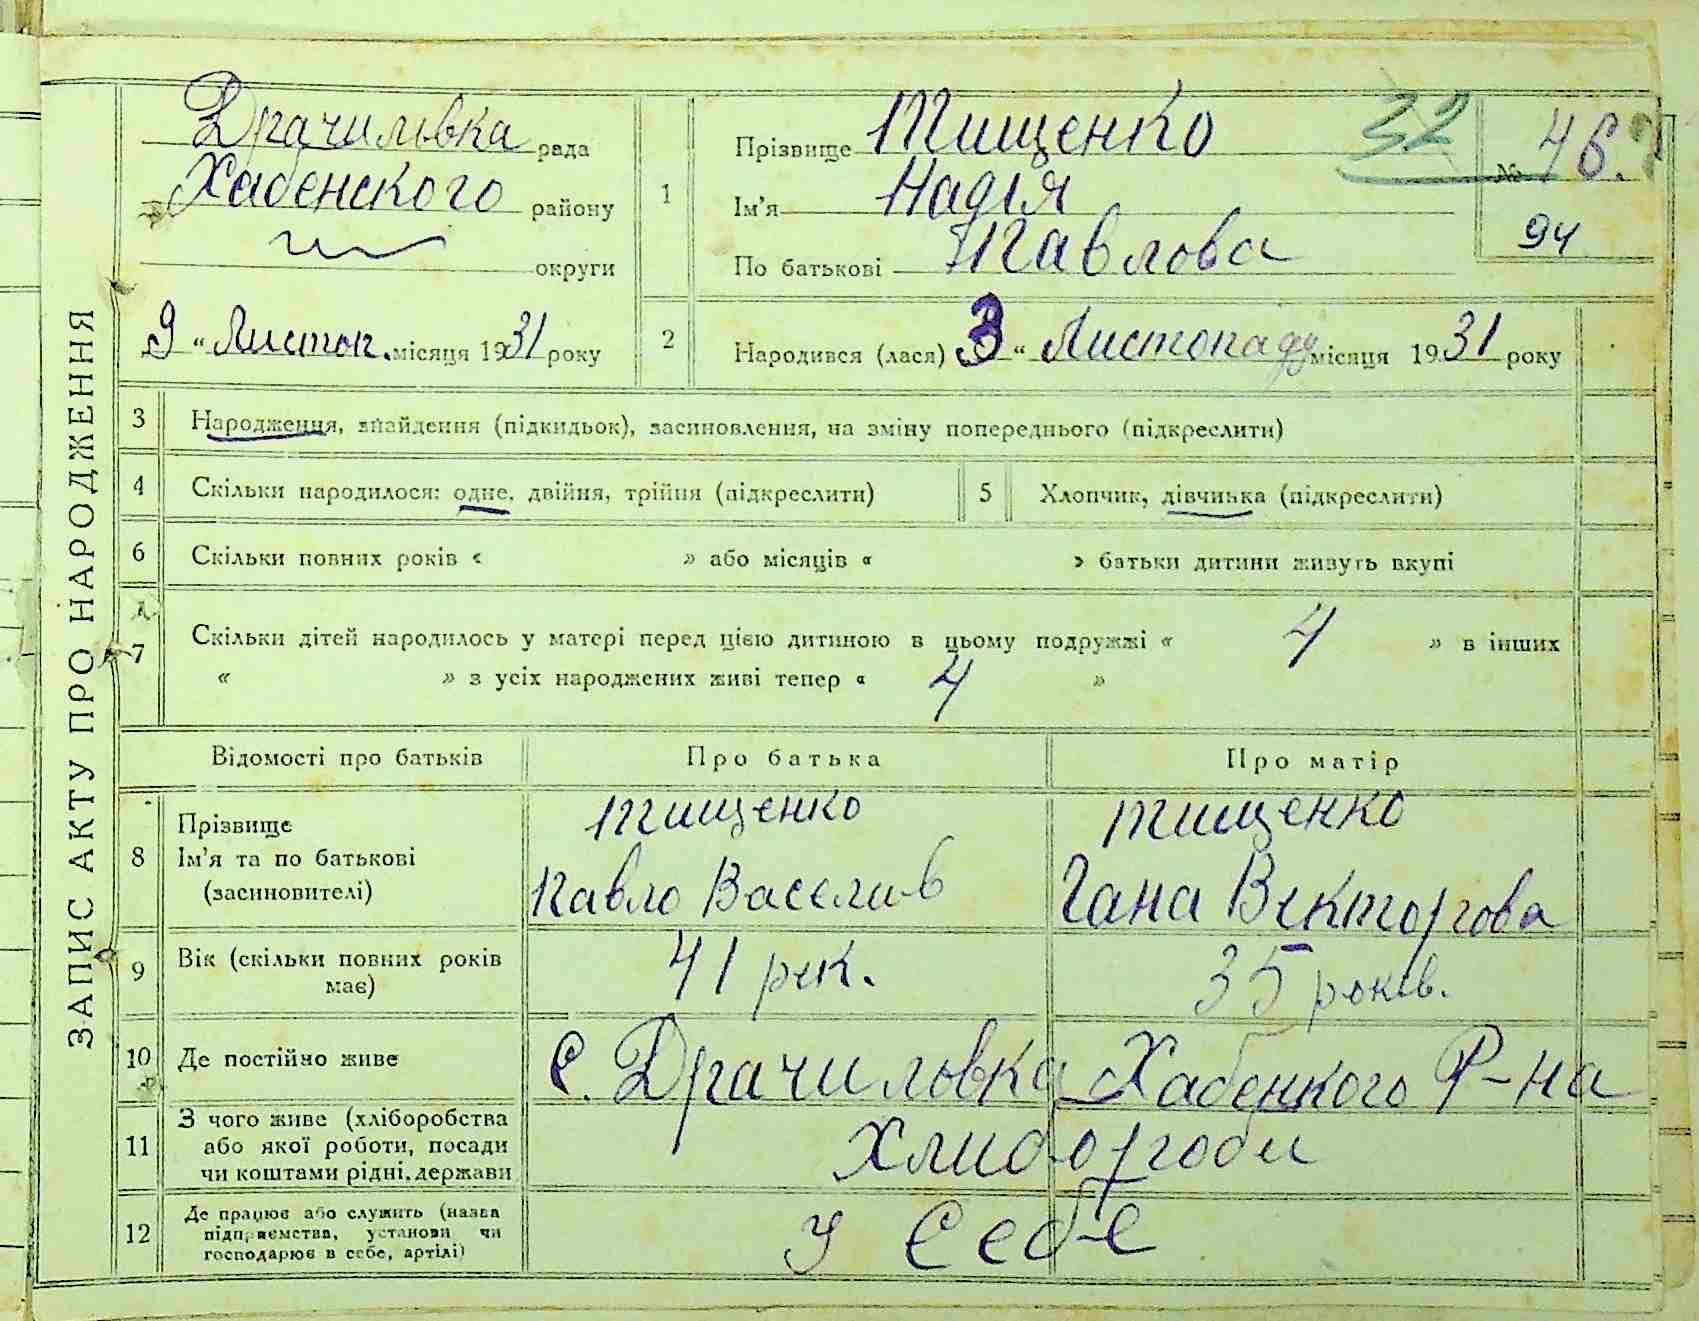 ЗАПИС АКТУ ПРО НАРОДЖЕННЯ
Драчилювка рада
Хабенского району
округи
„9 “ Листоп. місяця 1931 року
1
Прізвище Тищенко
Ім'я Надія
По батькові Павлова
32
№ 46.
94
2
Народився (лася) „3 “ Листопаду місяця 1931 року
3 Народження, знайдення (підкидьок), засиновлення, на зміну попереднього (підкреслити)
4 Скільки народилося: одне, двійня, трійня (підкреслити) 5 Хлопчик, дівчинка (підкреслити)
6 Скільки повних років « » або місяців « » батьки дитини живуть вкупі
7 Скільки дітей народилось у матері перед цією дитиною в цьому подружжі « 4 » в інших
« » з усіх народжених живі тепер « 4 »
Відомості про батьків Про батька Про матір
8 Прізвище
Ім'я та по батькові
(засиновителі)
Тищенко
Павло Васелив
Тищенко
Гана Вікторгова
9 Вік (скільки повних років
має)
41 рік.
35 років.
10 Де постійно живе
с. Драчиловка Хабенкого Р-на
11 З чого живе (хліборобства
або якої роботи, посади
чи коштами рідні, держави
Хлиборгоби
12 Де працює або служить (назва
підприємства, установи чи
господарює в себе, артілі)
у Себе